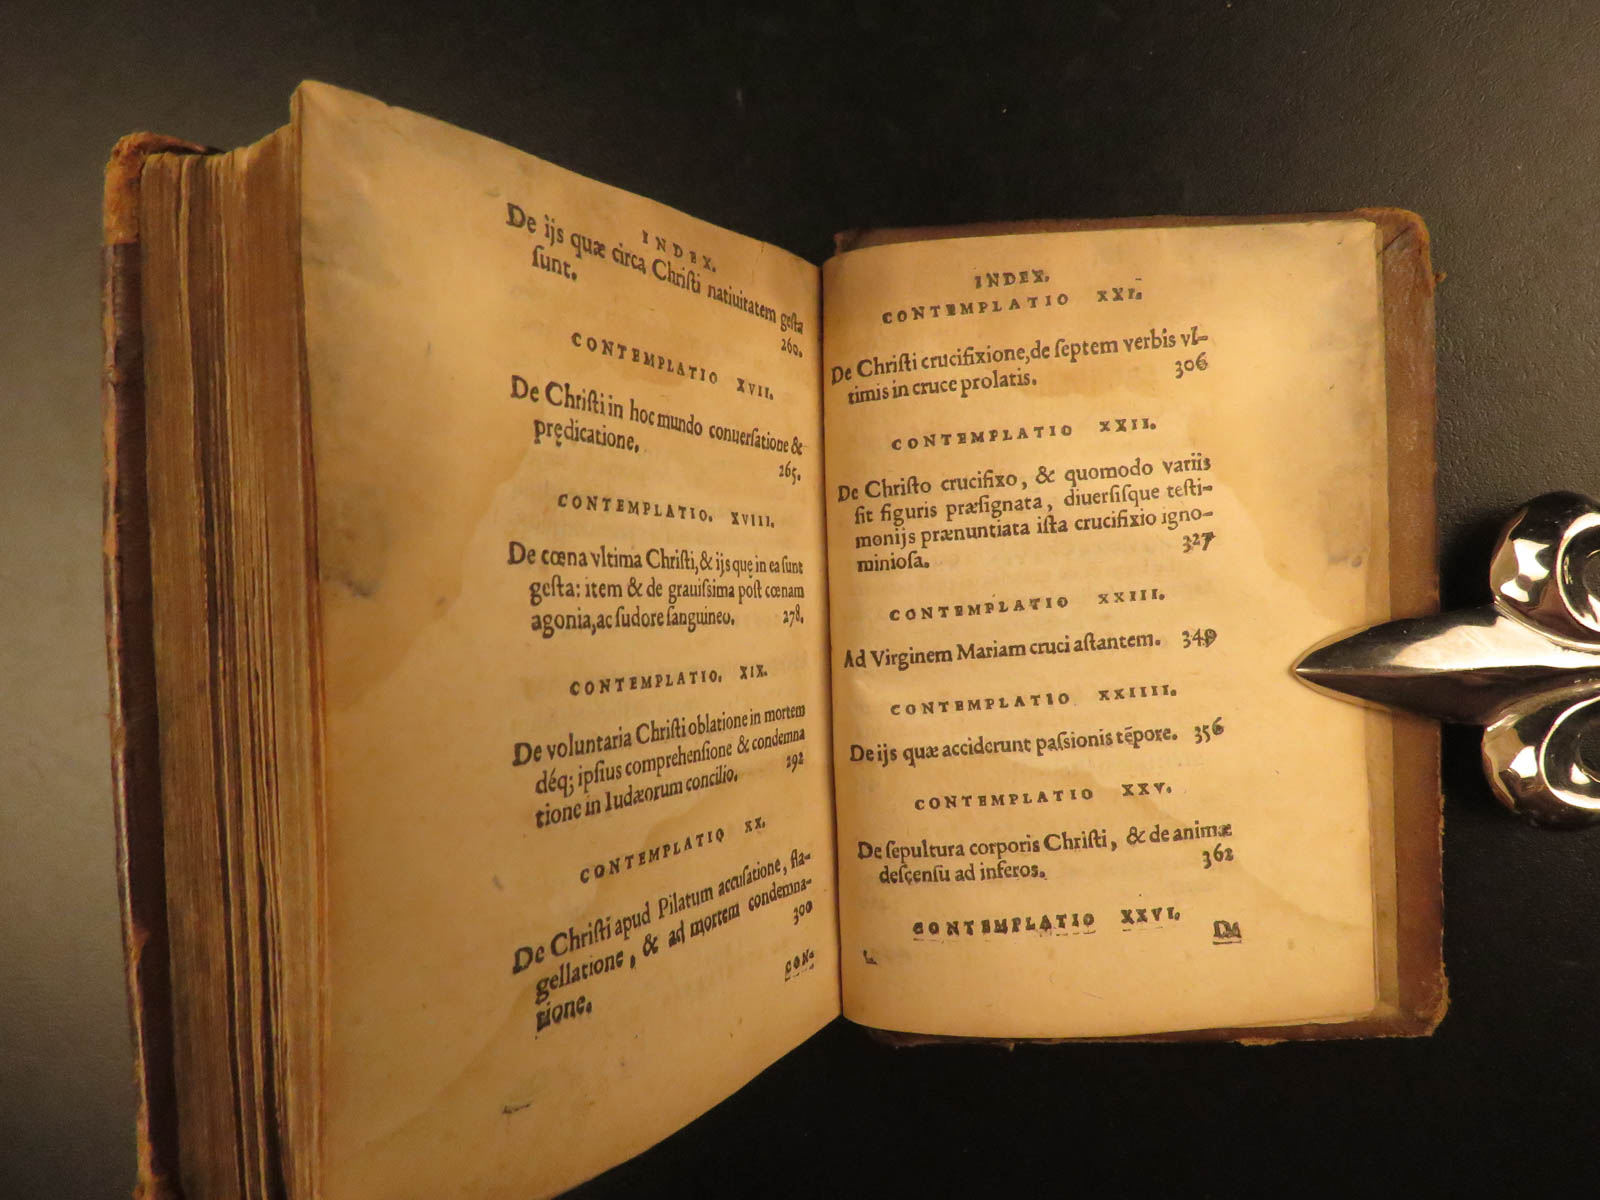 INDEX.
De ijs quæ circa Chriſti natiuitatem geſta
ſunt. 260.
CONTEMPLATIO XVII.
De Chriſti in hoc mundo conuerſatione &
prędicatione. 265.
CONTEMPLATIO. XVIII.
De cœna vltima Chriſti, & ijs quę in ea ſunt
geſta: item & de grauiſsima poſt cœnam
agonia, ac ſudore ſanguineo. 278.
CONTEMPLATIO. XIX.
De voluntaria Chriſti oblatione in mortem
déq; ipſius comprehenſione & condemna
tione in Iudæorum concilio. 292
CONTEMPLATIO XX.
De Chriſti apud Pilatum accuſatione, fla-
gellatione, & ad mortem condemna-
tione. 300
CON-
INDEX.
CONTEMPLATIO XXI.
De Chriſti crucifixione, de ſeptem verbis vl-
timis in cruce prolatis. 306
CONTEMPLATIO XXII.
De Chriſto crucifixo, & quomodo variis
ſit figuris præſignata, diuerſiſque teſti-
monijs prænuntiata iſta crucifixio igno-
minioſa. 327
CONTEMPLATIO XXIII.
Ad Virginem Mariam cruci aſtantem. 349
CONTEMPLATIO XXIIII.
De ijs quæ acciderunt paſsionis tēpore. 356
CONTEMPLATIO XXV.
De ſepultura corporis Chriſti, & de animæ
deſcenſu ad inferos. 362
CONTEMPLATIO XXVI.